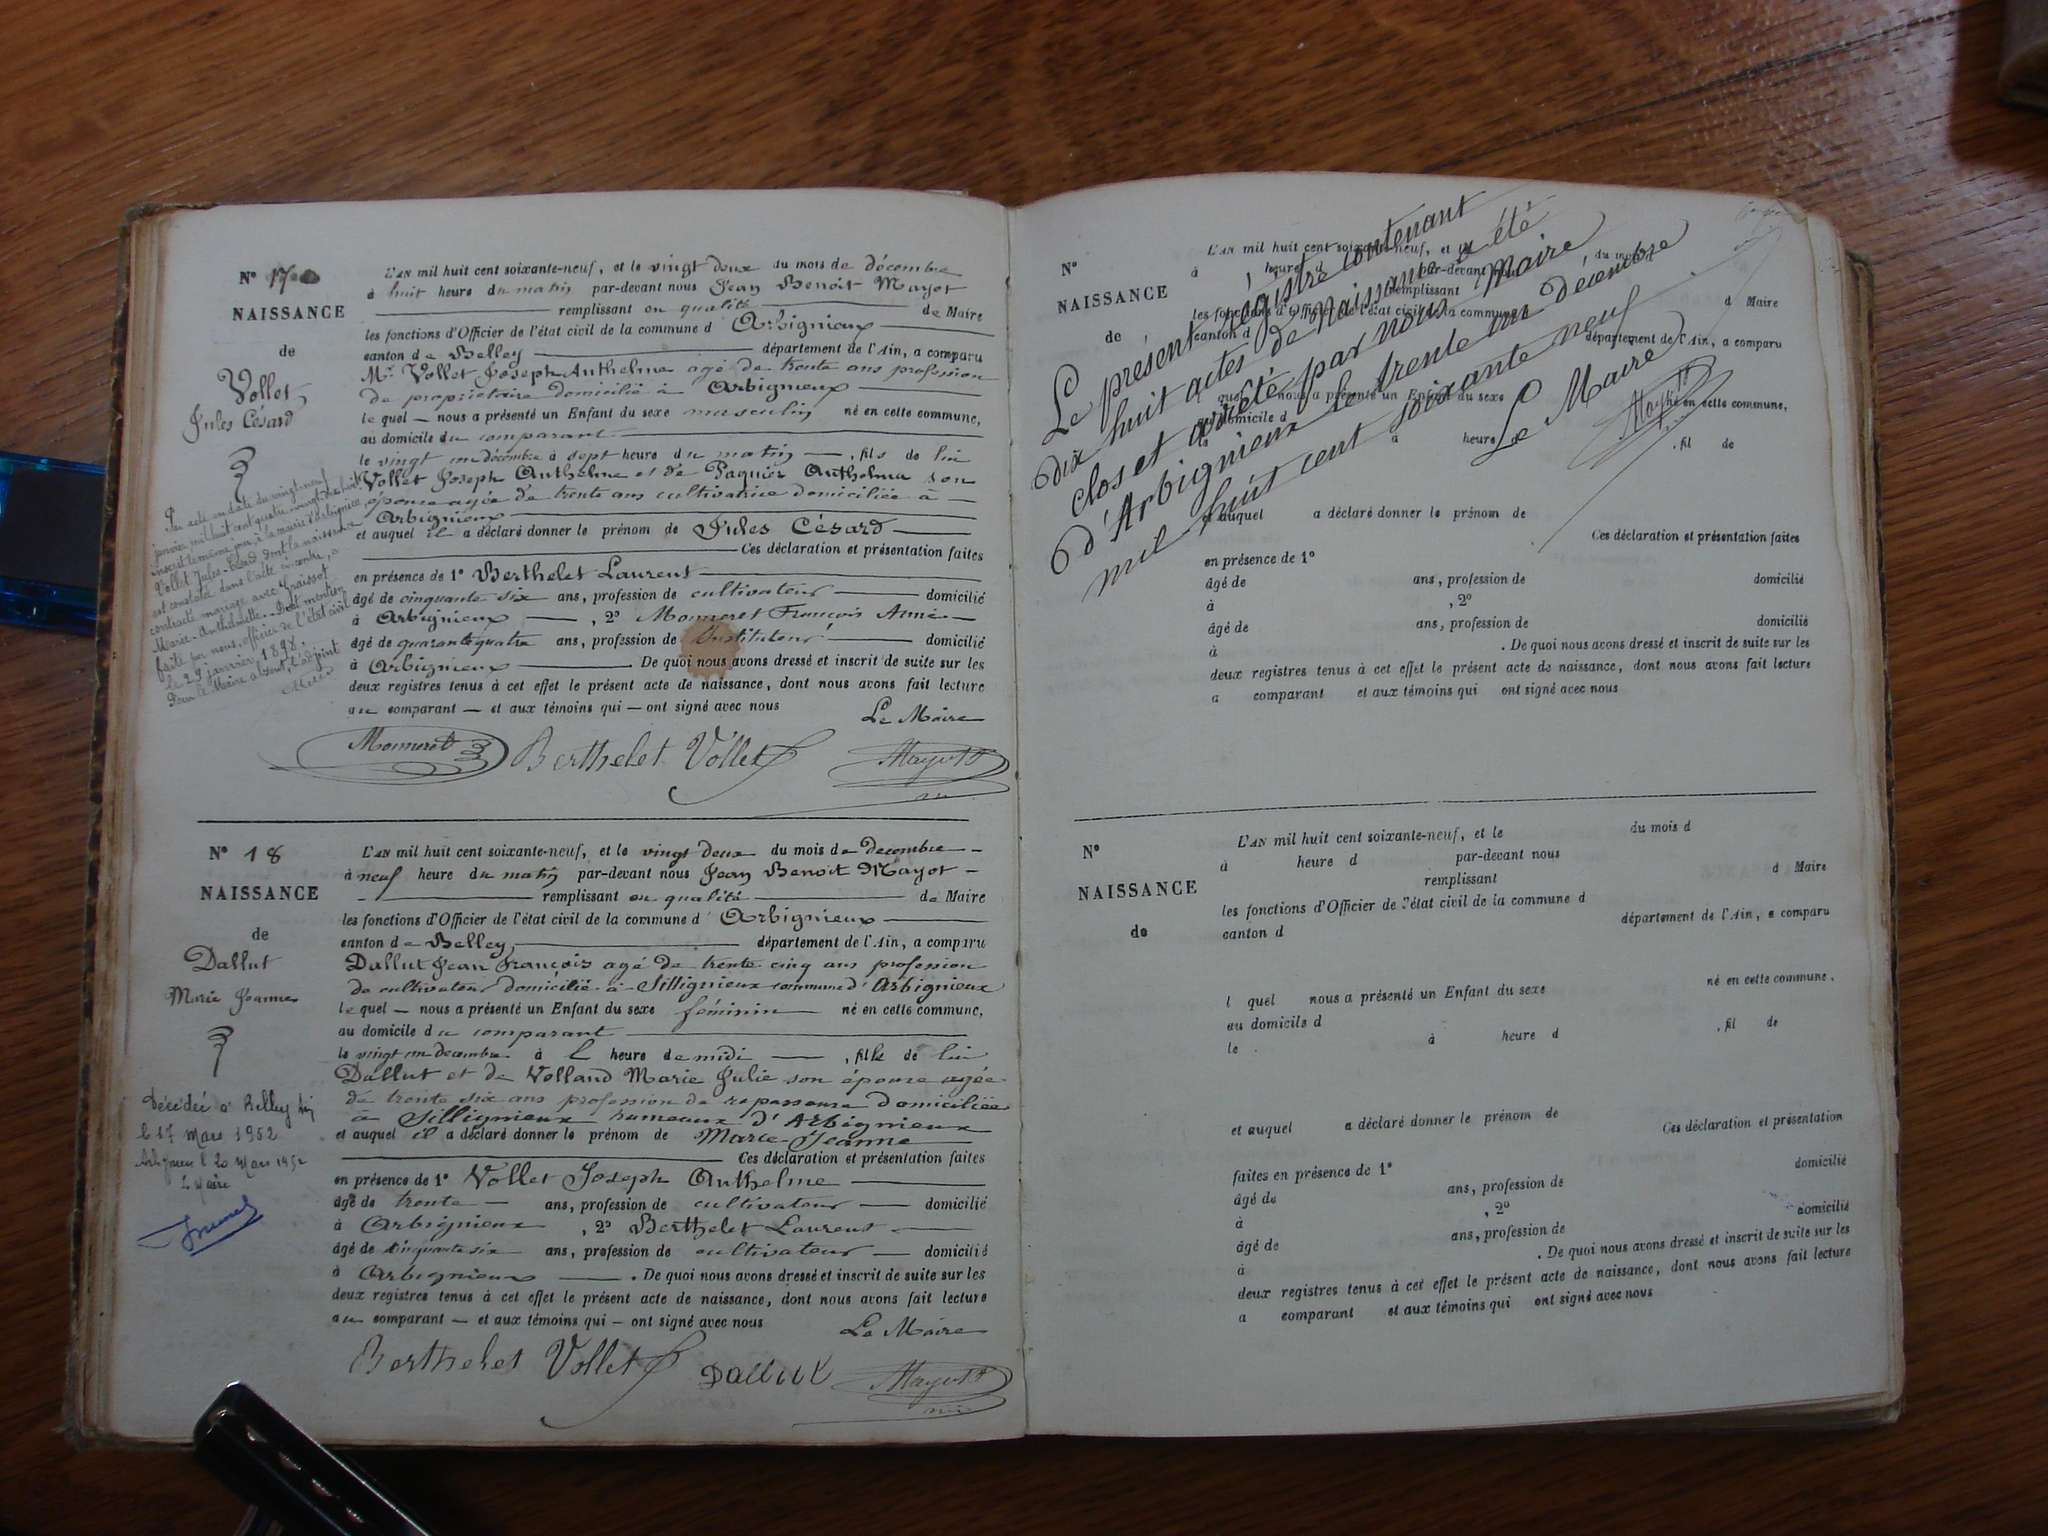 N° 17
NAISSANCE
de
Vollet
Jules Césard
L'AN mil huit cent soixante-neuf, et le vingt deux du mois de décembre
à huit heure du matin par-devant nous Jean Benoit Mayot
remplissant en qualité de Maire
les fonctions d'Officier de l'état civil de la commune d'Arbignieux
canton de Belley département de l'Ain, a comparu
Mr Vollet Joseph Anthelme agé de trente ans profession
de propriétaire domicilié à Arbignieux
le quel — nous a présenté un Enfant du sexe masculin né en cette commune,
au domicile du comparant
le vingt un décembre à sept heure du matin — , fils de lui
Vollet Joseph Anthelme et de Paquier Anthelma son
épouse agée de trente ans cultivatrice domiciliée à —
Arbignieux
et auquel il a déclaré donner le prénom de Jules Césard
Ces déclaration et présentation faites
en présence de 1° Berthelet Laurent
âgé de cinquante six ans, profession de cultivateur domicilié
à Arbignieux — , 2° Monneret François Aimé —
âgé de quarante quatre ans, profession de Instituteur domicilié
à Arbignieux . De quoi nous avons dressé et inscrit de suite sur les
deux registres tenus à cet effet le présent acte de naissance, dont nous avons fait lecture
au comparant — et aux témoins qui — ont signé avec nous
Le Maire
Monneret Berthelet Vollet Mayot
Par acte en date du vingt-neuf
janvier mil huit cent quatre-vingt-dix-huit
inscrit le même jour à la mairie d'Arbignieux
Vollet Jules-César dont la naissance
est constatée dans l'acte ci-contre, a
contracté mariage avec
Marie-Anthelmette. Dont mention
faite par nous, officier de l'état civil
le 29 janvier 1898.
Pour le Maire absent, l'adjoint
N° 18
NAISSANCE
de
Dallut
Marie Jeanne
L'AN mil huit cent soixante-neuf, et le vingt deux du mois de decembre —
à neuf heure du matin par-devant nous Jean Benoit Mayot —
remplissant en qualité de Maire
les fonctions d'Officier de l'état civil de la commune d'Arbignieux
canton de Belley, département de l'Ain, a comparu
Dallut Jean François agé de trente cinq ans profession
de cultivateur domicilié à Sillignieux commune d'Arbignieux
le quel — nous a présenté un Enfant du sexe féminin né en cette commune,
au domicile du comparant
le vingt un decembre à L heure de midi — , fille de lui
Dallut et de Volland Marie Julie son épouse agée
de trente six ans profession de repasseuse domiciliée
à Sillignieux hameaux d'Arbignieux
et auquel il a déclaré donner le prénom de Marie-Jeanne
Ces déclaration et présentation faites
en présence de 1° Vollet Joseph Anthelme
âgé de trente — ans, profession de cultivateur — domicilié
à Arbignieux , 2° Berthelet Laurent
âgé de cinquante six ans, profession de cultivateur — domicilié
à Arbignieux — . De quoi nous avons dressé et inscrit de suite sur les
deux registres tenus à cet effet le présent acte de naissance, dont nous avons fait lecture
au comparant — et aux témoins qui — ont signé avec nous
Le Maire
Berthelet Vollet Dallut Mayot
Décédée à Belley
le 17 Mars 1952
le 20 Mars 1952
Le Maire
Le présent registre contenant
dix huit actes de Naissance a été
clos et arrêté par nous Maire
d'Arbignieux le trente un décembre
mil huit cent soixante neuf
Le Maire
Mayot
N°
NAISSANCE
de
L'AN mil huit cent soixante-neuf, et le du mois d
à heure d par-devant nous
remplissant
d Maire
les fonctions d'Officier de l'état civil de la commune
canton d
département de l'Ain, a comparu
quel nous a présenté un Enfant du sexe
né en cette commune,
domicile d
à heure
, fil de
et auquel a déclaré donner le prénom de
Ces déclaration et présentation faites
en présence de 1°
âgé de ans, profession de domicilié
à , 2°
âgé de ans, profession de domicilié
à . De quoi nous avons dressé et inscrit de suite sur les
deux registres tenus à cet effet le présent acte de naissance, dont nous avons fait lecture
a comparant et aux témoins qui ont signé avec nous
N°
NAISSANCE
de
L'AN mil huit cent soixante-neuf, et le du mois d
à heure d par-devant nous
remplissant d Maire
les fonctions d'Officier de l'état civil de la commune d
canton d département de l'Ain, a comparu
l quel nous a présenté un Enfant du sexe né en cette commune,
au domicile d
le à heure d , fil de
et auquel a déclaré donner le prénom de
Ces déclaration et présentation
faites en présence de 1° domicilié
âgé de ans, profession de
à , 2°
âgé de ans, profession de domicilié
à . De quoi nous avons dressé et inscrit de suite sur les
deux registres tenus à cet effet le présent acte de naissance, dont nous avons fait lecture
a comparant et aux témoins qui ont signé avec nous